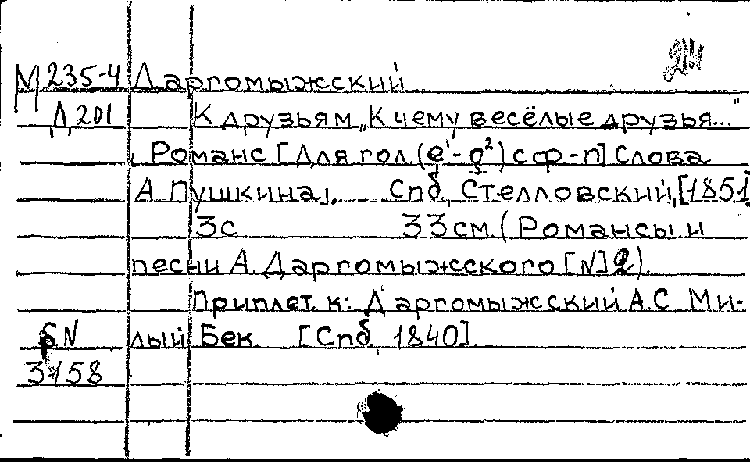 М 235-4 Даргомыжский
Д 201 К друзьям „К чему весёлые друзья..."
Романс [Для гол. (e¹-g²) с ф-п] Слова
А Пушкина,. Спб, Стелловский, [1851]
3с 33см. (Романсы и
песни А. Даргомыжского [N] 2).
Приплет. к: Даргомыжский А.С Ми-
бN лый Бек. [Спб, 1840].
3458